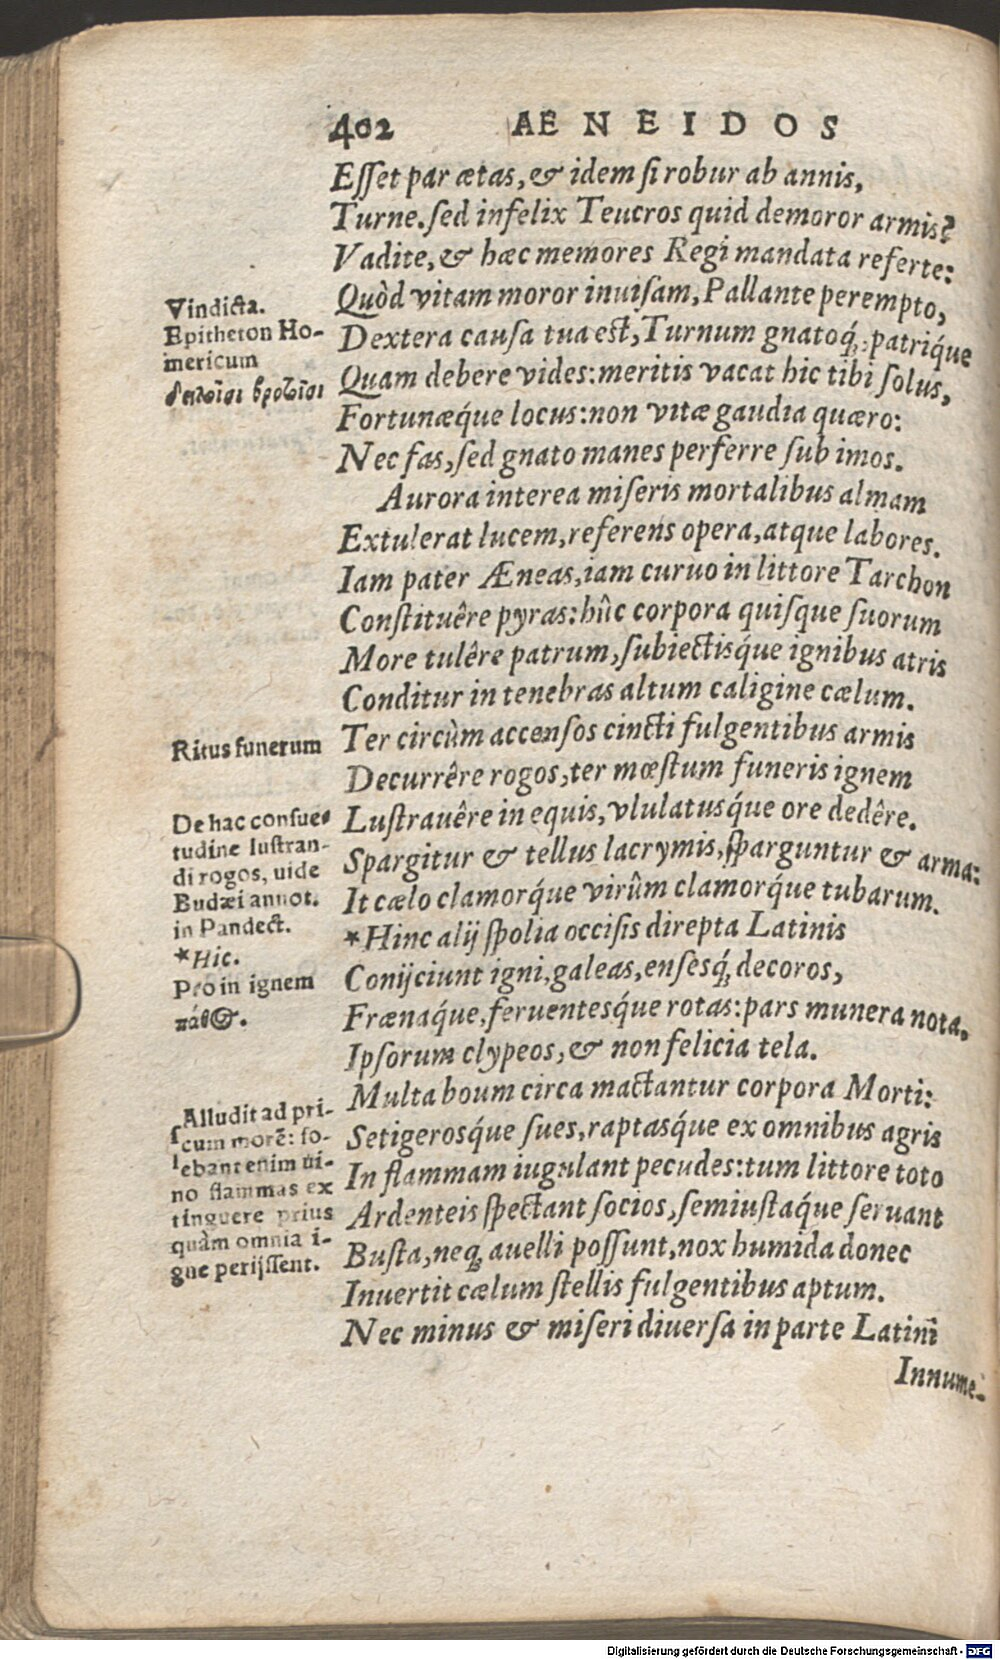 402 AENEIDOS
Esset par ætas, & idem si robur ab annis,
Turne. sed infelix Teucros quid demoror armis?
Vadite, & hæc memores Regi mandata referte:
Quòd vitam moror inuisam, Pallante perempto,
Dextera causa tua est, Turnum gnatoq́; patriq́ue
Quam debere vides: meritis vacat hic tibi solus,
Fortunæq́ue locus: non vitæ gaudia quæro:
Nec fas, sed gnato manes perferre sub imos.
Aurora interea miseris mortalibus almam
Extulerat lucem, referens opera, atque labores.
Iam pater Æneas, iam curuo in littore Tarchon
Constituêre pyras: hûc corpora quisque suorum
More tulêre patrum, subiectisq́ue ignibus atris
Conditur in tenebras altum caligine cælum.
Ter circùm accensos cincti fulgentibus armis
Decurrêre rogos, ter mœstum funeris ignem
Lustrauêre in equis, vlulatusq́ue ore dedêre.
Spargitur & tellus lacrymis, sparguntur & arma:
It cælo clamorq́ue virûm clamorq́ue tubarum.
*Hinc alij spolia occisis direpta Latinis
Conijciunt igni, galeas, ensesq́; decoros,
Frænaq́ue, feruentesq́ue rotas: pars munera nota,
Ipsorum clypeos, & non felicia tela.
Multa boum circa mactantur corpora Morti:
Setigerosq́ue sues, raptasq́ue ex omnibus agris
In flammam iugulant pecudes: tum littore toto
Ardenteis spectant socios, semiustaq́ue seruant
Busta, neq; auelli possunt, nox humida donec
Inuertit cælum stellis fulgentibus aptum.
Nec minus & miseri diuersa in parte Latini
Innume-
Vindicta.
Epitheton Ho-
mericum
δειλοῖσι βροτοῖσι
Ritus funerum
De hac consue-
tudine lustran-
di rogos, uide
Budæi annot.
in Pandect.
*Hic.
Pro in ignem
πάθος.
Alludit ad pri-
scum morẽ: so-
lebant enim ui-
no flammas ex
tinguere prius
quàm omnia i-
gne perijssent.
Digitalisierung gefördert durch die Deutsche Forschungsgemeinschaft - DFG